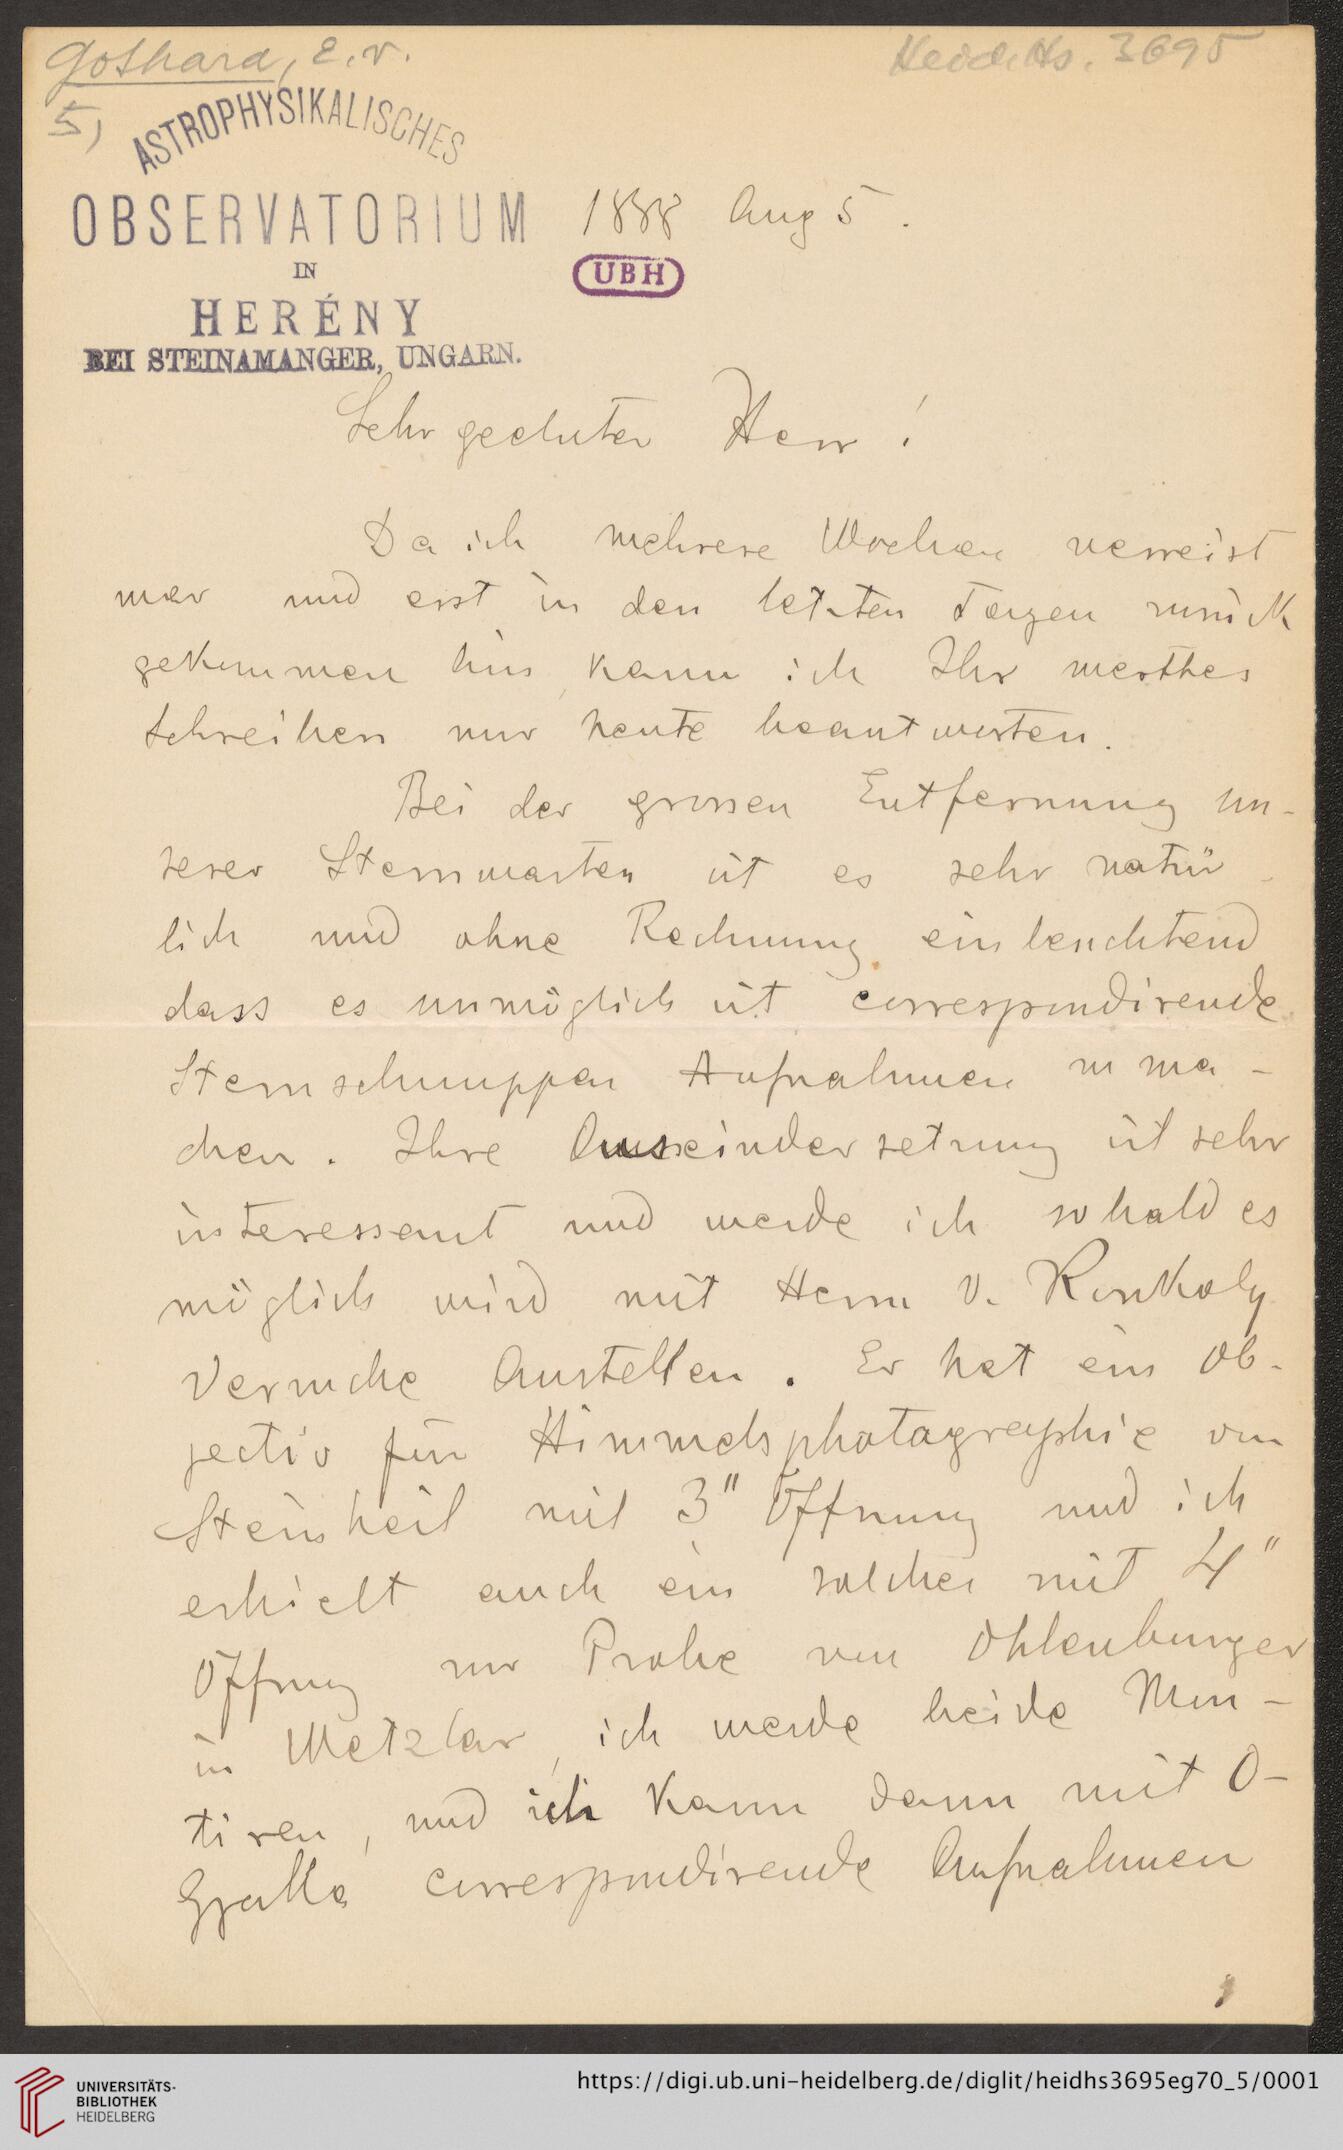 Gothard, E. v.
Heid. Hs. 3695
5,
ASTROPHYSIKALISCHES
OBSERVATORIUM
IN
HERÉNY
BEI STEINAMANGER, UNGARN.
1888 Aug 5.
UBH
Sehr geehrter Herr!
Da ich mehrere Wochen verreist
war und erst in den letzten Tagen zurück
gekommen bin, kann ich Ihr werthes
Schreiben nur heute beantworten.
Bei der grossen Entfernung un-
serer Sternwarten ist es sehr natür-
lich und ohne Rechnung einleuchtend
dass es unmöglich ist correspondirende
Sternschnuppen Aufnahmen zu ma-
chen. Ihre Auseindersetzung ist sehr
interessant und werde ich sobald es
möglich wird mit Herrn v. Konkoly
Versuche Anstellen. Er hat ein Ob-
jectiv für Himmelsphotographie von
Steinheil mit 3" Öffnung und ich
erhielt auch ein solches mit 4"
Öffnug zur Probe von Ohlenburger
in Wetzlar, ich werde beide Mon-
tiren, und ich kann dann mit O-
Gyalla correspondirende Aufnahmen
UNIVERSITÄTS-
BIBLIOTHEK
HEIDELBERG
https://digi.ub.uni-heidelberg.de/diglit/heidhs3695eg70_5/0001